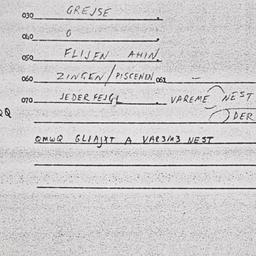 030 GREJSE
040 O
050 FLIJEN AHIN
060 ZINGEN / PISCENEN 061 -
070 JEDER FEJGL - VAREME NEST
DER
QMWQ GLIAJXT A VAR3M3 NEST